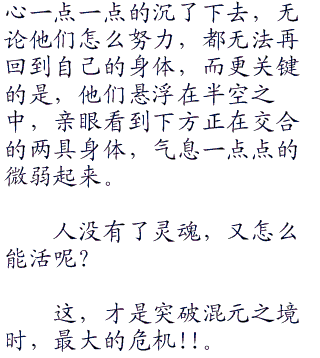 心一点一点的沉了下去，无
论他们怎么努力，都无法再
回到自己的身体，而更关键
的是，他们悬浮在半空之
中，亲眼看到下方正在交合
的两具身体，气息一点点的
微弱起来。
人没有了灵魂，又怎么
能活呢？
这，才是突破混元之境
时，最大的危机!!。